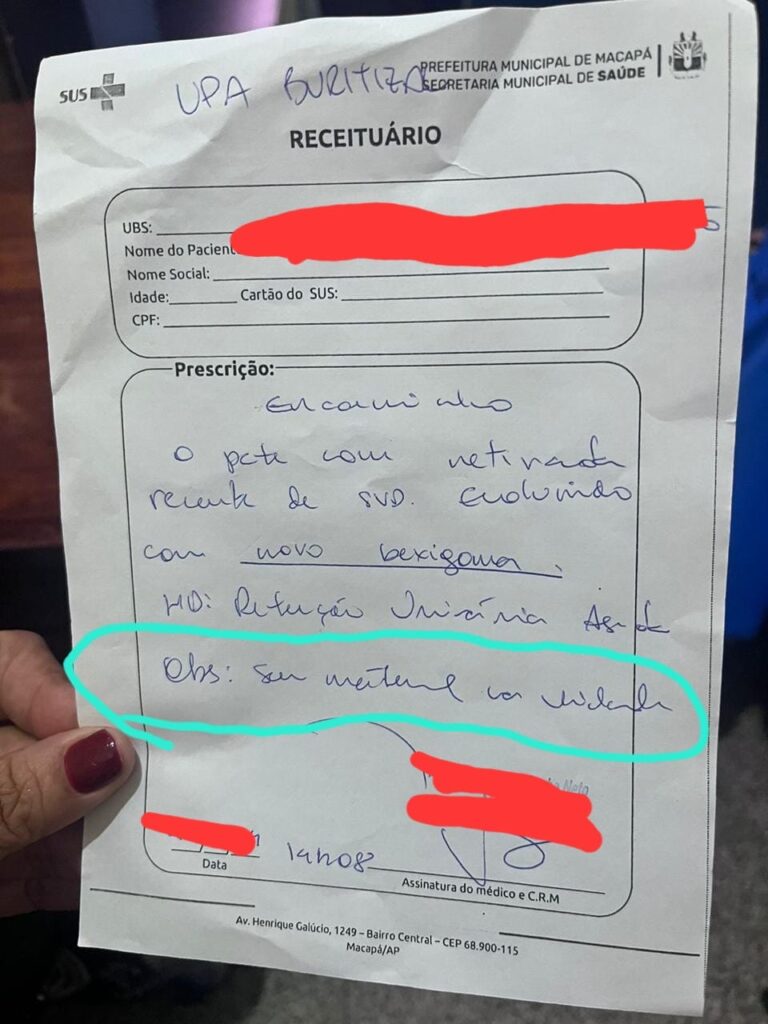 SUS
UPA BURITIZAL
PREFEITURA MUNICIPAL DE MACAPÁ
SECRETARIA MUNICIPAL DE SAÚDE
RECEITUÁRIO
UBS:
Nome do Pacient
Nome Social:
Idade: Cartão do SUS:
CPF:
Prescrição:
Encaminho
O pcte com retirada
recente de SVD. Evoluindo
com novo bexigoma.
HD: Retenção Urinária Aguda
Obs: Sem material na unidade
Neto
14h08
Data
Assinatura do médico e C.R.M
Av. Henrique Galúcio, 1249 – Bairro Central – CEP 68.900-115
Macapá/AP